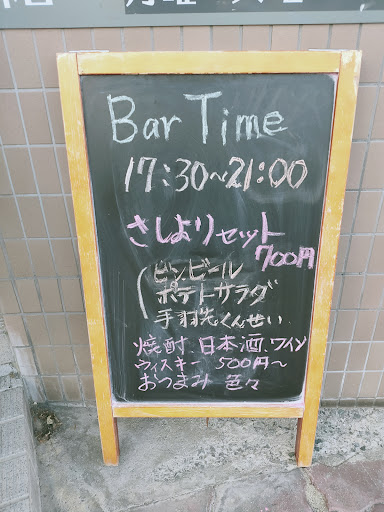 Bar Time
17:30~21:00
さしよりセット
700円
ビンビール
ポテトサラダ
手羽先くんせい
焼酎 日本酒 ワイン
ウィスキー 500円~
おつまみ 色々